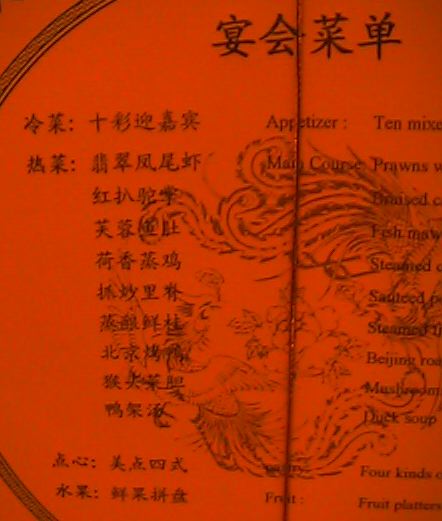 宴会菜单
冷菜: 十彩迎嘉宾 Appetizer : Ten mixe
热菜: 翡翠凤尾虾 Main Course: Prawns w
红扒驼掌 Braised c
芙蓉鱼肚 Fish maw
荷香蒸鸡 Steamed c
抓炒里脊 Sauteed p
蒸酿鲜桂 Steamed
北京烤鸭 Beijing roa
猴头菜胆 Mushroom
鸭架汤 Duck soup
点心: 美点四式 Four kinds o
水果: 鲜果拼盘 Fruit : Fruit platters